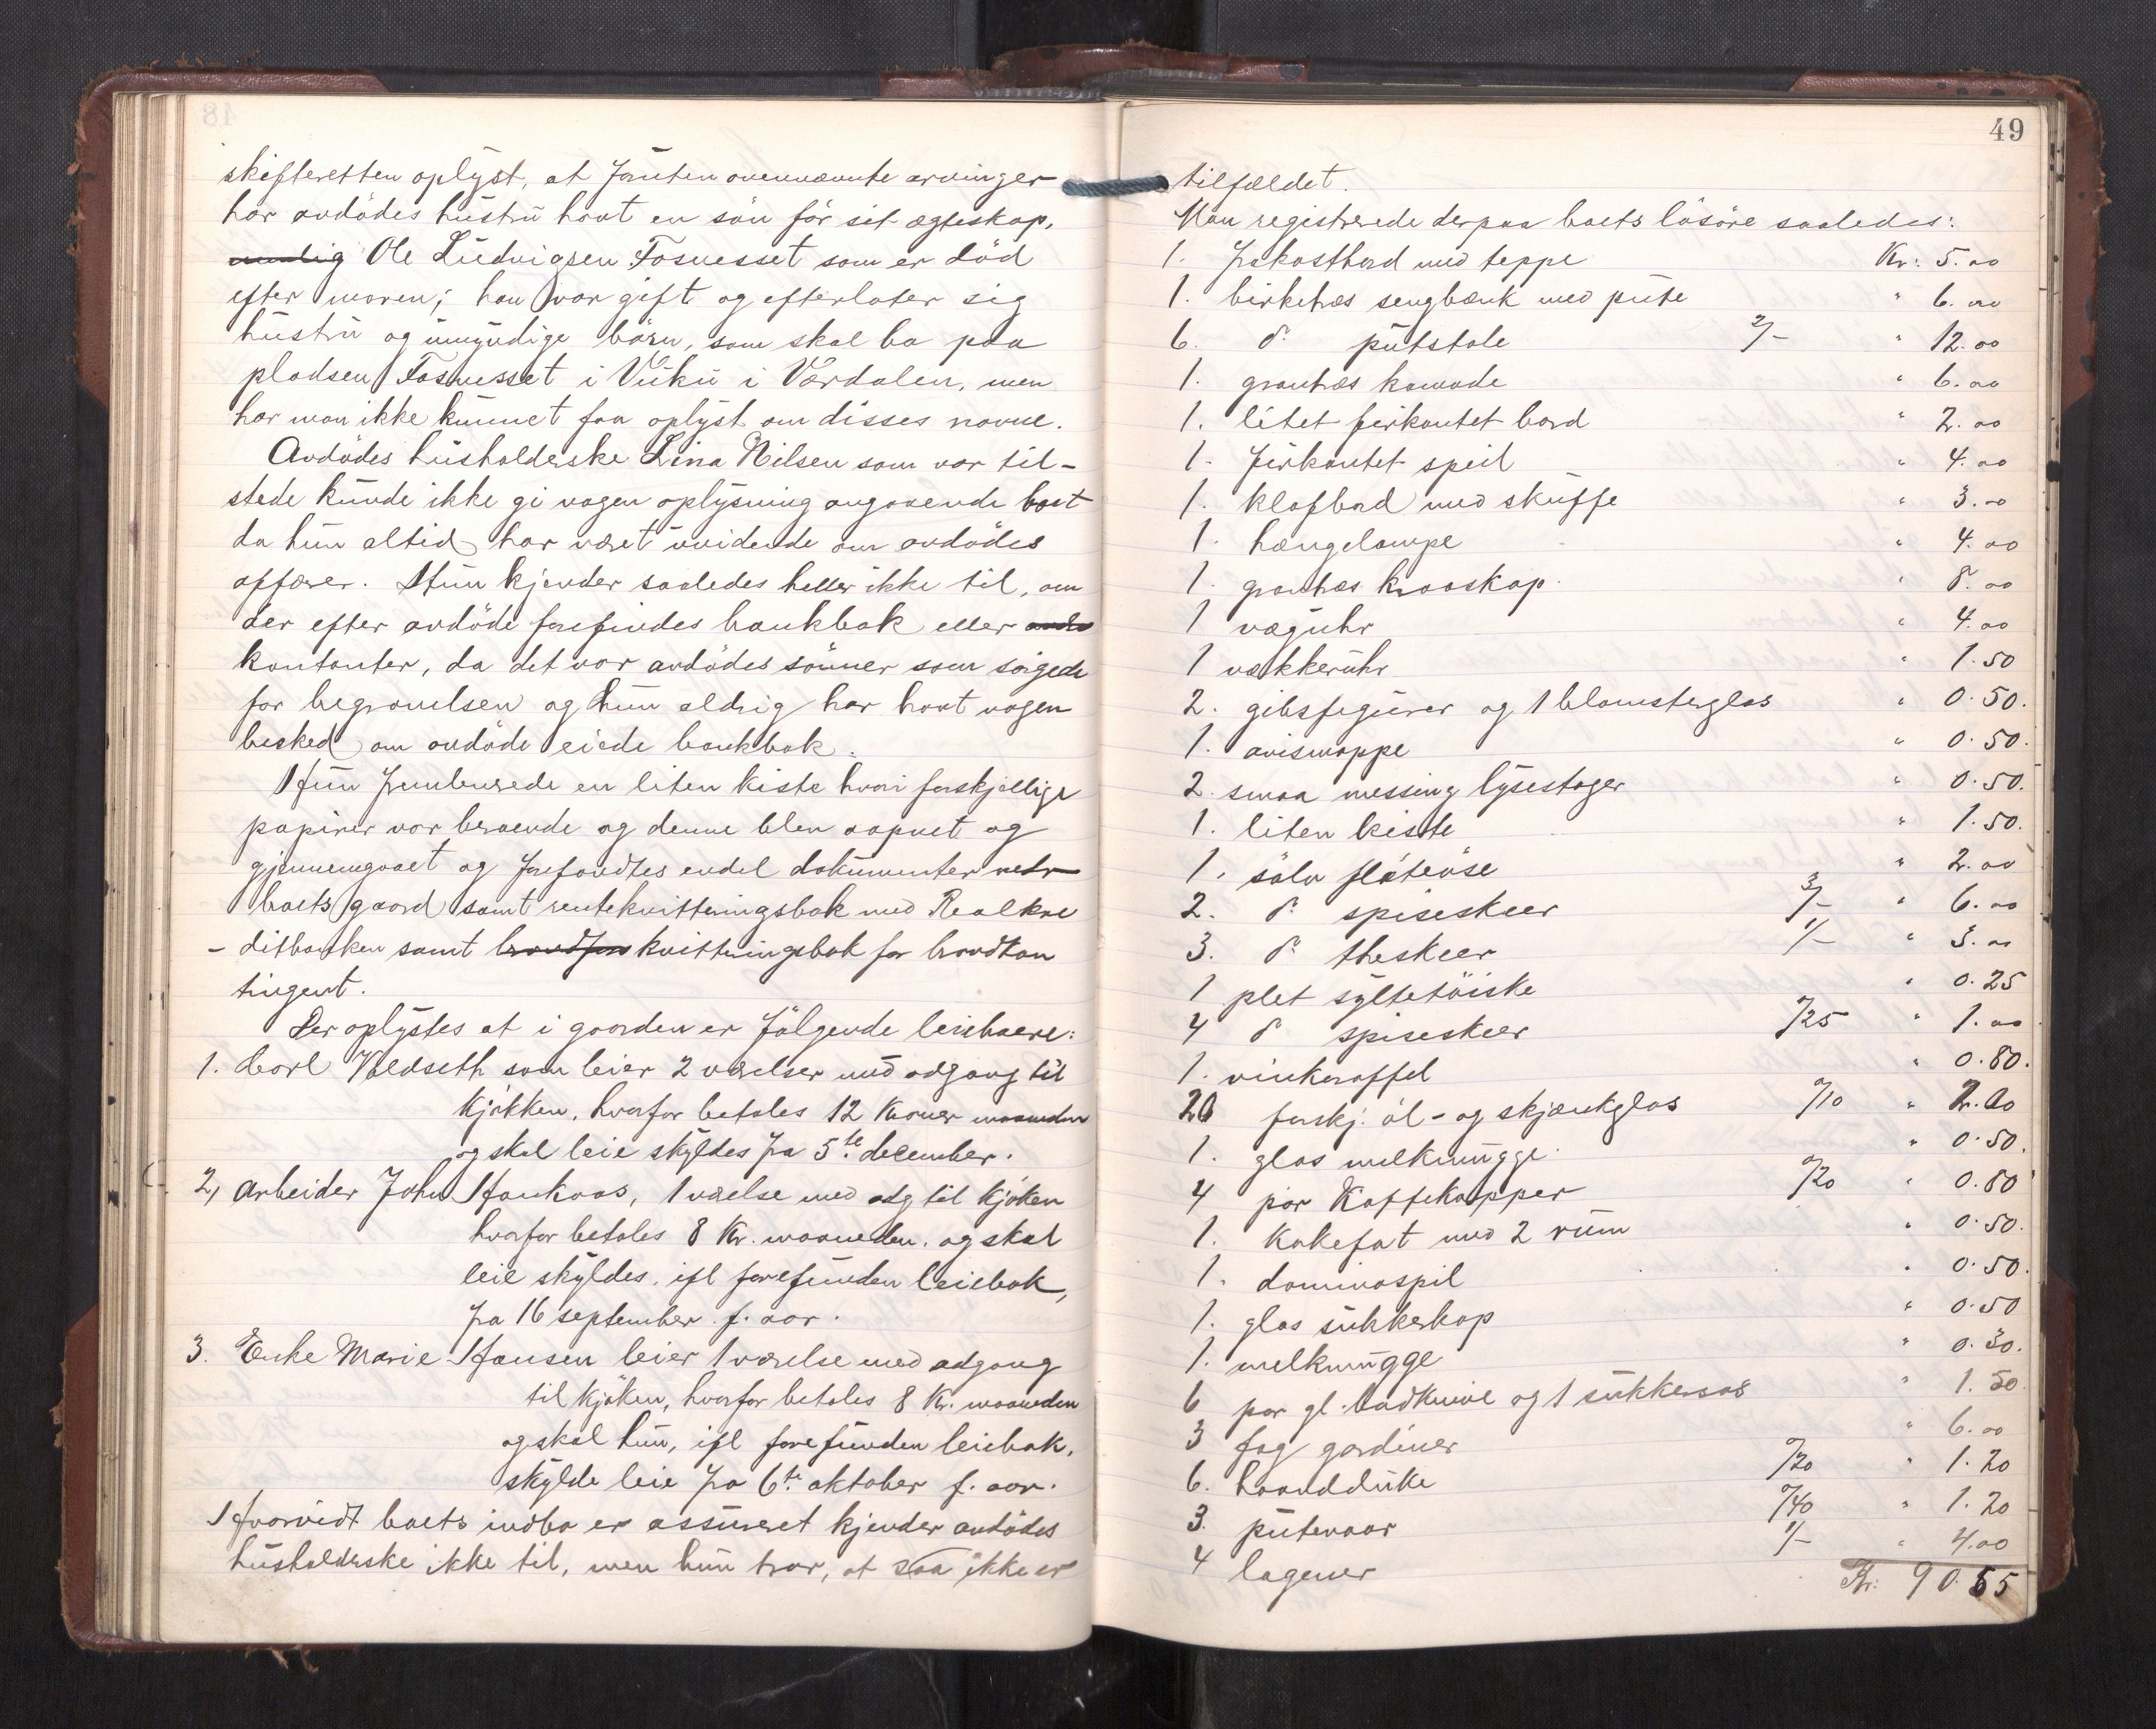 skifteretten oplyst, at foruten ovennævnte arvinger
har avdödes hustru havt en sön för sit ægteskap,
nemlig Ole Ludvigsen Fosnesset som er död
efter moren; han var gift og efterlater sig
hustru og umyndige börn, som skal bo paa
pladsen Fosnesset i Vuku i Værdalen, men
har man ikke kunnet faa oplyst om disses navne.
Avdödes husholderske Lina Nilsen som var til-
stede kunde ikke gi nogen oplysning angaaende boet
da hun altid har været uvidende om avdödes
affærer. Hun kjender saaledes heller ikke til, om
der efter avdöde forefindes bankbok eller andre
kontanter, da det var avdödes sönner som sörgede
for begravelsen og hun aldrig har havt nogen
besked om avdöde eiede bankbok.
Hun frembærede en liten kiste hvori forskjellige
papirer var beroende og denne blev aapnet og
gjennemgaaet og forefandtes endel dokumenter vedr
boets gaard samt rentekvitteringsbok med Realkre
- ditbanken samt brandfor kvitteringsbok for brandkon
tingent.
Der oplystes at i gaarden er følgende leieboere:
1. Carl Voldseth som leier 2 værelser med adgang til
kjökken, hvorfor betales 12 Kroner maaneden
og skal leie skyldes fra 5te december.
2, Arbeider John Haukaas, 1 værelse med adg til kjöken
hvorfor betales 8 Kr. maaneden. og skal
leie skyldes, ifl forefunden leiebok,
fra 16 september f. aar.
3. Enke Marie Hansen leier 1 værelse med adgang
til kjöken, hvorfor betales 8 Kr. maaneden
og skal hun, ifl forefunden leiebok,
skylde leie fra 6te oktober f. aar.
Hvorvidt boets indbo er assureret kjender avdödes
husholderske ikke til, men hun tror, at saa ikke er
49
tilfældet.
Man registrerede derpaa boets lösöre saaledes:
1. frokostbord med teppe Kr: 5.00
1. birketræs sengbænk med pute " 6.00
6. do putstole 2/- " 12.00
1. grantræs komode " 6.00
1. litet firkantet bord " 2.00
1. firkantet speil " 4.00
1. klafbord med skuffe " 3.00
1. hængelampe " 4.00
1. grantræs kroaskap. " 8.00
1 væguhr " 4.00
1 vækkeruhr " 1.50
2. gibsfigurer og 1 blomsterglas " 0.50.
1. avismappe " 0.50.
2. smaa messing lysestager " 0.50.
1. liten kiste " 1.50.
1. sölv flöteöse " 2.00
2. do spiseskeer 3/- " 6.00
3. do theskeer 1/- " 3.00
1 plet syltetöiske " 0.25
4 do spiseskeer 0/25 " 1.00
1. vinkaraffel " 0.80.
20 forskj. öl- og skjænkglas 0/10 " 2.00
1. glas melkmugge " 0.50.
4 par Kaffekopper 0/20 " 0.80
1. Kakefat med 2 rum " 0.50.
1. dominospil " 0.50.
1. glas sukkerkop " 0.50
1. melkmugge " 0.30.
6 par gl. bordknive og 1 sukkersaks " 1.50
3 fag gardiner " 6.00
6. haandduke 0/20 " 1.20
3. putevaar 0/40 " 1.20
4 lagener 1/- " 4.00
Kr: 90.55